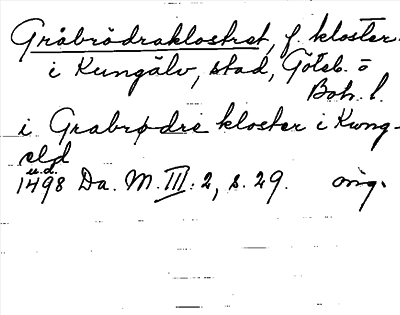 Gråbrödraklostret, f. kloster
i Kungälv, stad, Göteb. o
Boh. l.
i Grabrødre kloster i Kung-
elff
u.d.
1498 Da. M. III: 2, s. 29. orig.